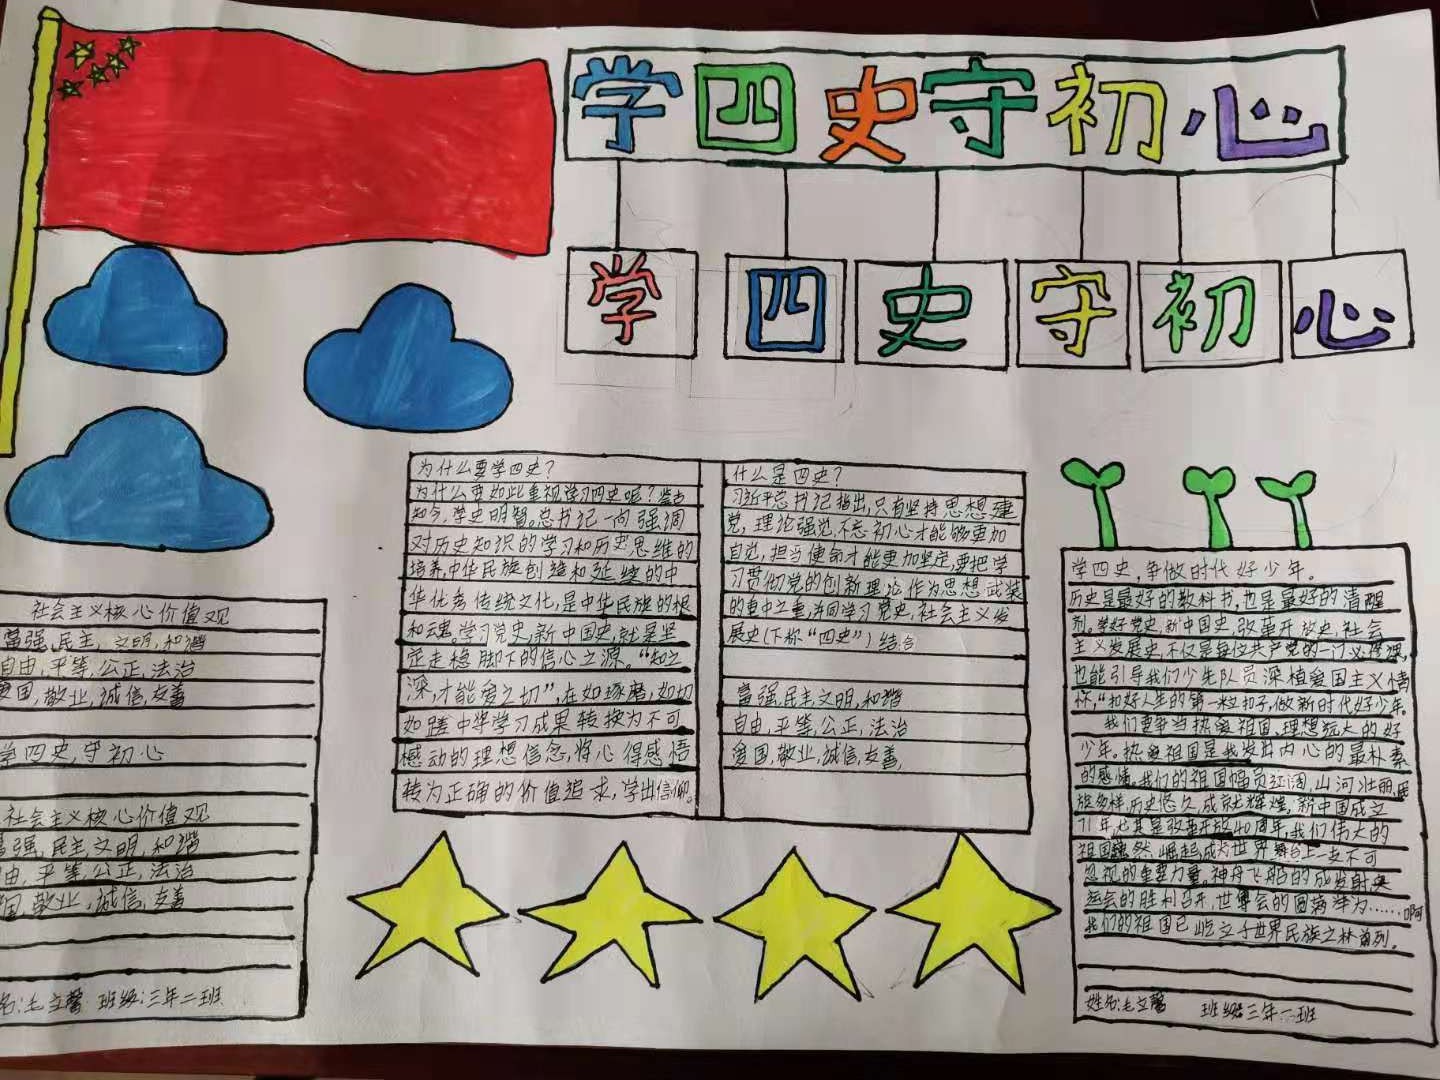 学四史守初心
学 四 史 守 初 心
社会主义核心价值观
富强,民主,文明,和谐
自由,平等,公正,法治
爱国,敬业,诚信,友善
学四史,守初心
社会主义核心价值观
富强,民主,文明,和谐
由,平等,公正,法治
国,敬业,诚信,友善
名:毛立馨 班级:三年二班
为什么要学四史?
为什么要如此重视学习四史呢?鉴古
知今,学史明智。总书记一向强调
对历史知识的学习和历史思维的
培养,中华民族创造和延续的中
华优秀传统文化,是中华民族的根
和魂。学习党史,新中国史,就是坚
定走稳脚下的信心之源。“知之
深,才能爱之切”,在如琢磨,如切
如蹉中举学习成果转换为不可
撼动的理想信念,将心得感悟
转为正确的价值追求,学出信仰。
什么是四史?
习近平总书记指出,只有坚持思想建
党,理论强党,不忘初心才能够更加
自觉,担当使命才能更加坚定,要把学
习贯彻党的创新理论作为思想武装
的重中之重,汤同学习党史,社会主义发
展史(下称“四史”)结合
富强,民主,文明,和谐
自由,平等,公正,法治
爱国,敬业,诚信,友善,
学四史,争做时代好少年。
历史是最好的教科书,也是最好的清醒
剂。学好党史,新中国史,改革开放史,社会
主义发展史,不仅是每位共产党的一门必修课,
也能引导我们少先队员深植爱国主义情
怀,“扣好人生的第一粒扣子,做新时代好少年。
我们要争当热爱祖国,理想远大的好
少年。热爱祖国是我发出内心的最朴素
的感情。我们的祖国幅员辽阔,山河壮丽,民
族多样,历史悠久,成就辉煌,新中国成立
71年尤其是改革开放40周年,我们伟大的
祖国巍然崛起,成为世界舞台上一支不可
忽视的重要力量。神舟飞船的成发射,奥
运会的胜利召开,世博会的圆满举为……啊
我们的祖国已屹立于世界民族之林前列。
姓名:毛立馨 班级三年二班